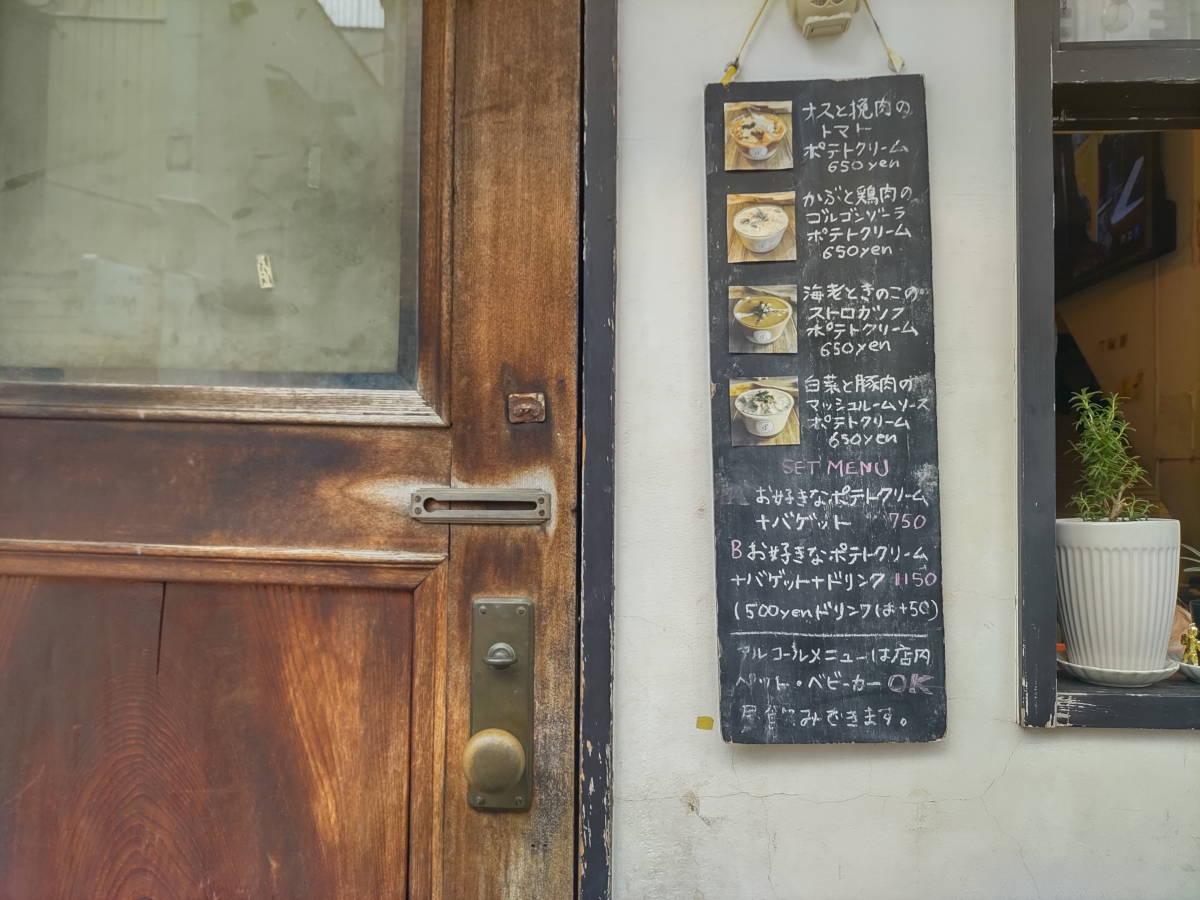 オスと挽肉の
トマト
ポテトクリーム
650yen
かぶと鶏肉の
ゴルゴンゾーラ
ポテトクリーム
650yen
海老ときのこの
ストロガノフ
ポテトクリーム
650yen
白菜と豚肉の
マッシュルームソース
ポテトクリーム
650yen
SET MENU
お好きなポテトクリーム
+バゲット 750
Bお好きなポテトクリーム
+バゲット+ドリンク 1150
(500yenドリンクは+50)
アルコールメニューは店内
ペット・ベビーカーOK
みできます。